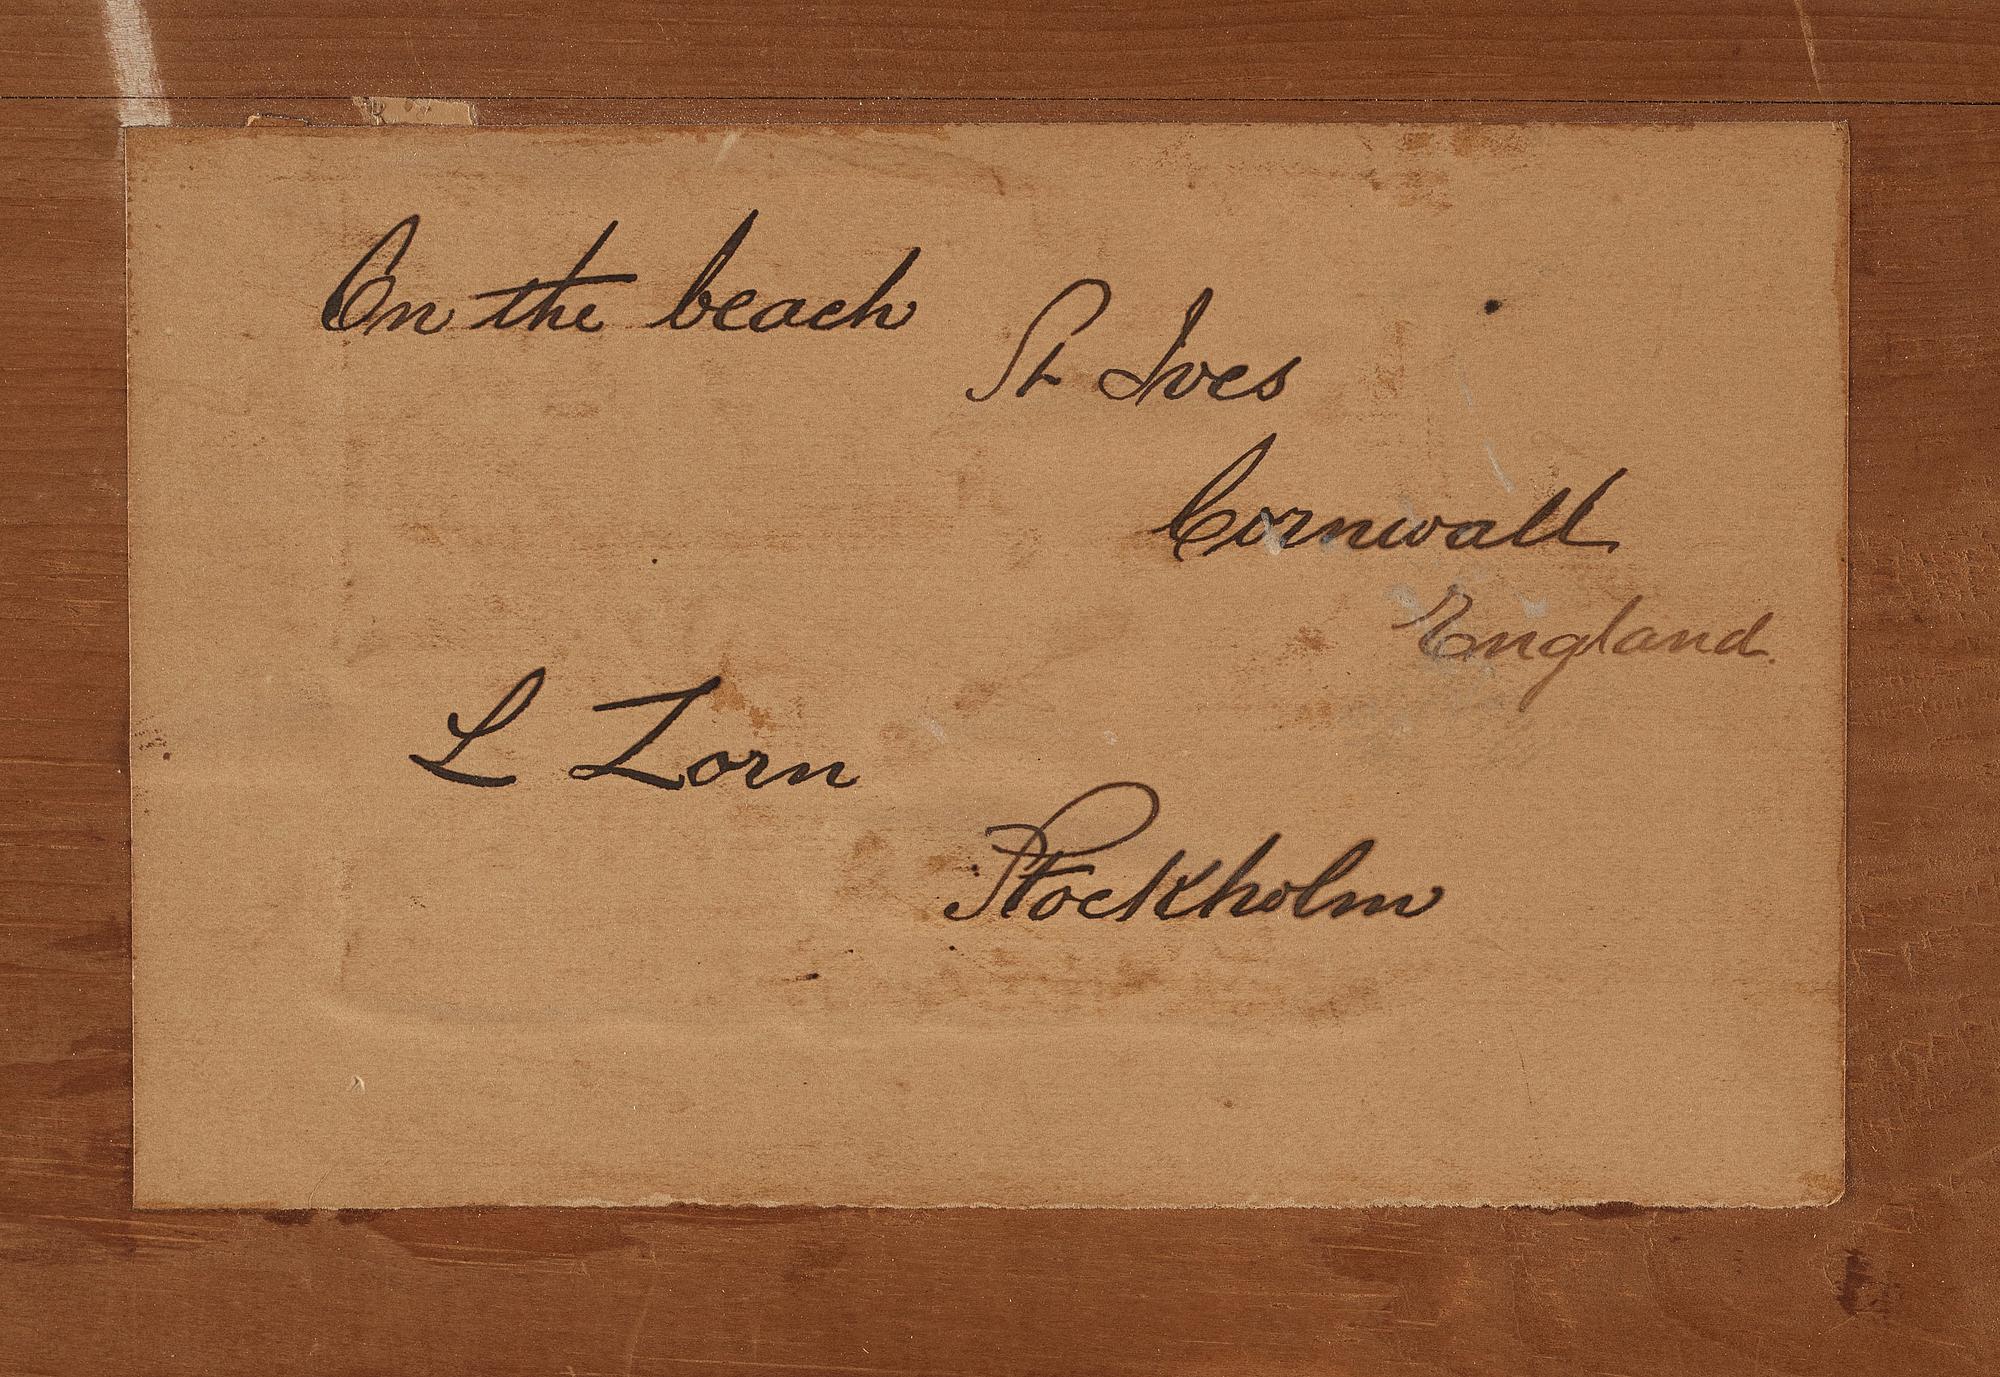 On the beach
St Ives
Cornwall
England.
L Zorn
Stockholm